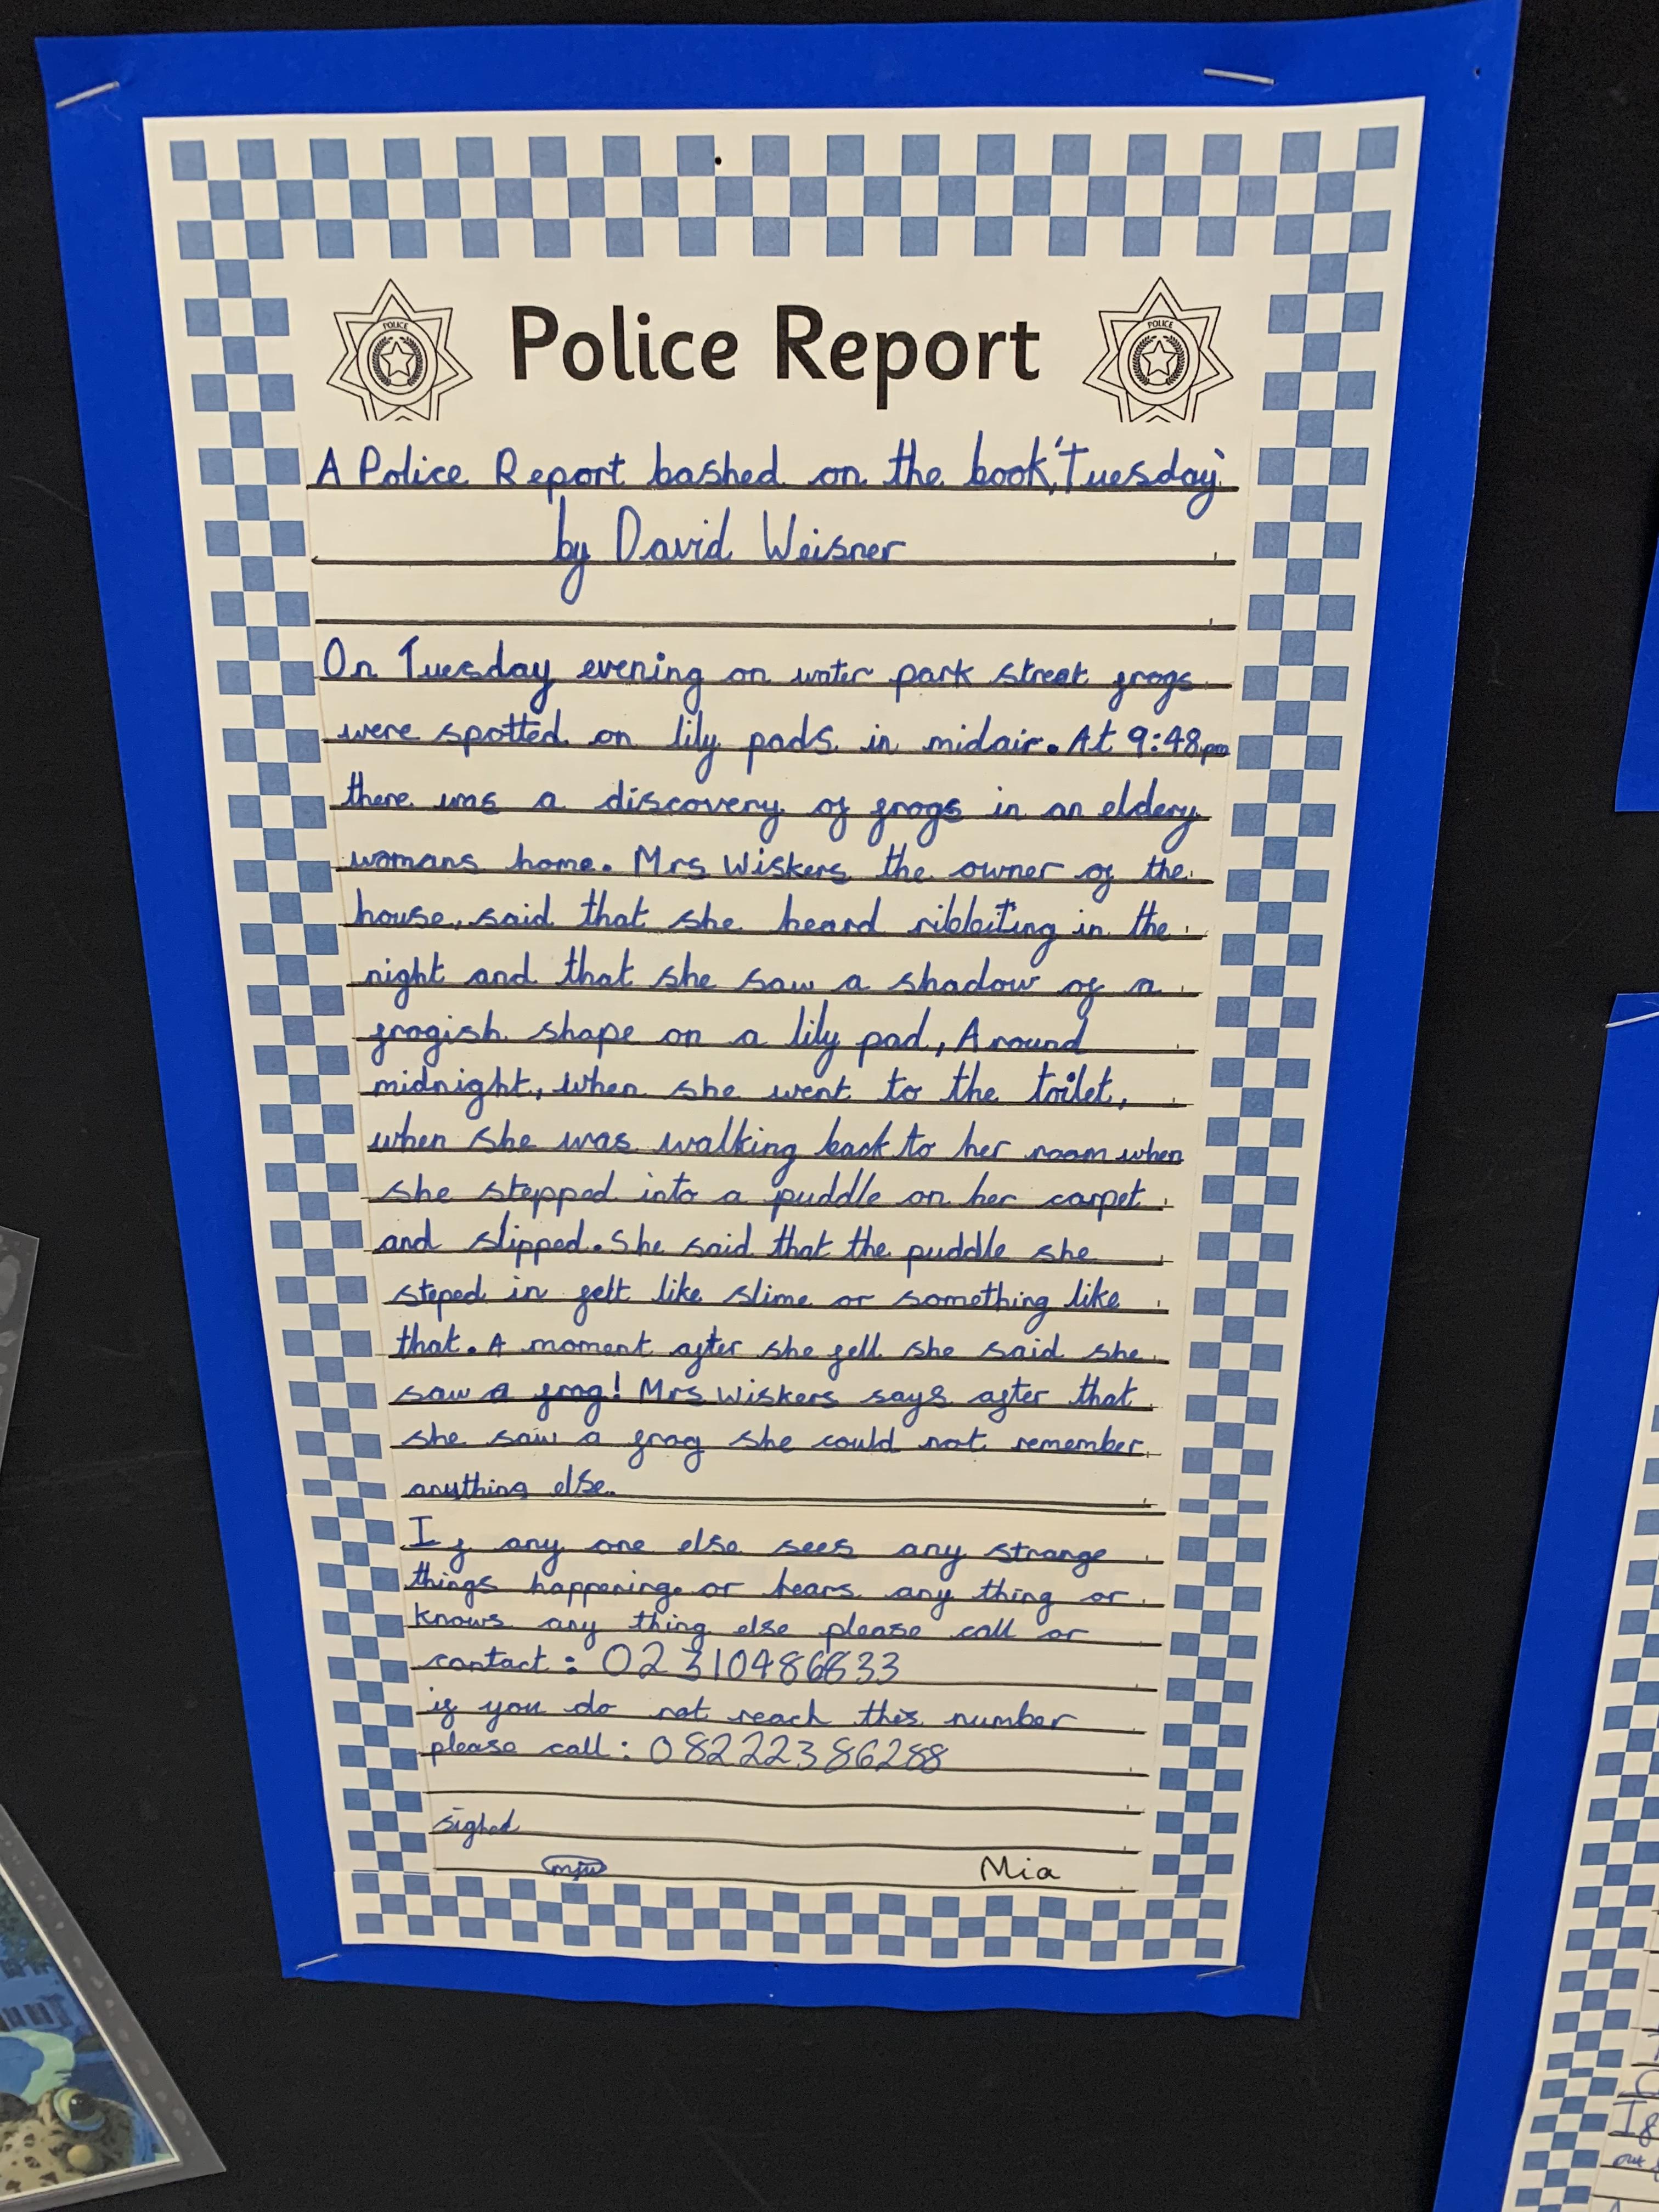 POLICE
POLICE
Police Report
A Police Report bashed on the book, 'Tuesday'
by David Weisner
On Tuesday evening on water park street frogs
were spotted on lily pads in midair. At 9:48pm
there was a discovery of frogs in an eldery
womans home. Mrs Wiskers the owner of the
house, said that she heard ribbiting in the
night and that she saw a shadow of a
frogish shape on a lily pad, Around
midnight, when she went to the toilet,
when she was walking back to her room when
she stepped into a puddle on her carpet
and slipped. She said that the puddle she
steped in felt like slime or something like
that. A moment after she fell she said she
saw a frog! Mrs Wiskers says after that
she saw a frog she could not remember
anything else.
If any one else sees any strange
things happening or hears any thing or
knows any thing else please call or
contact: 02310486833
if you do not reach this number
please call: 082222386288
sighed
Mia